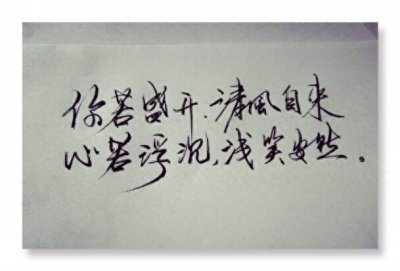 你若盛开,清风自来
心若浮沉,浅笑安然。